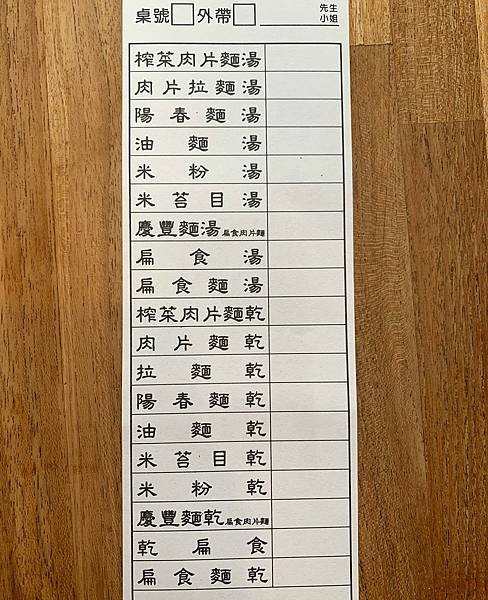 桌號 外帶 先生
小姐
榨菜肉片麵湯
肉片拉麵湯
陽春麵湯
油麵湯
米粉湯
米苔目湯
慶豐麵湯扁食肉片麵
扁食湯
扁食麵湯
榨菜肉片麵乾
肉片麵乾
拉麵乾
陽春麵乾
油麵乾
米苔目乾
米粉乾
慶豐麵乾扁食肉片麵
乾扁食
扁食麵乾